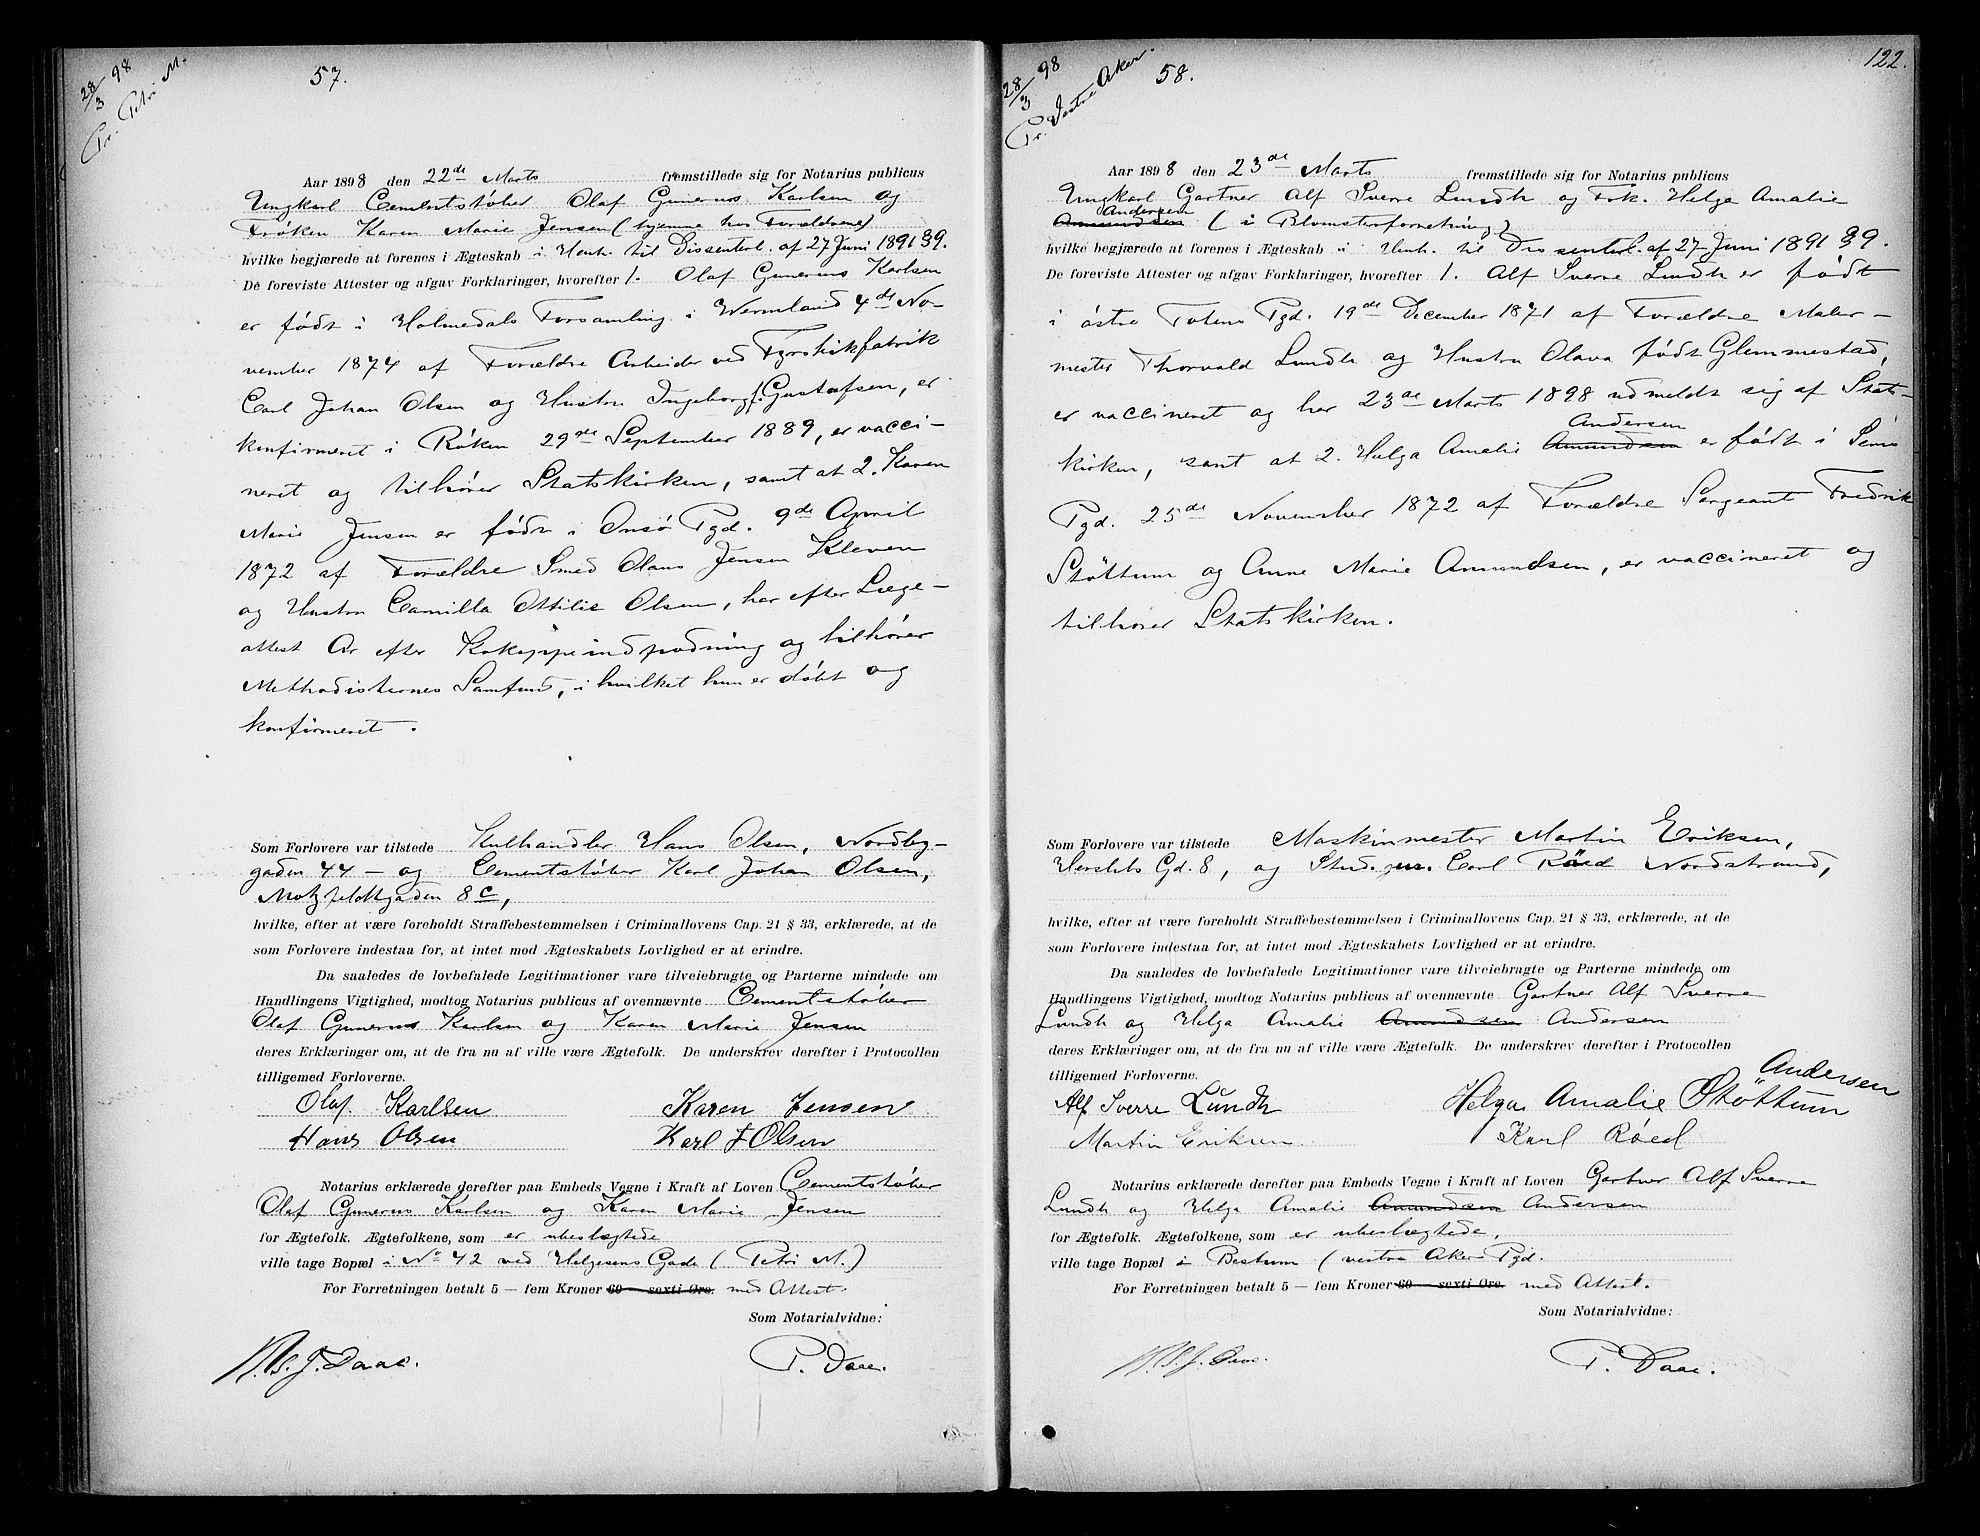 28/3 98
Pr. Petri M.
57.
Aar 1898 den 22de Marts fremstillede sig for Notarius publicus
Ungkarl Cementstøber Olaf Gunerius Karlsen og
Frøken Karen Marie Jensen (hjemme hos Forældrene)
hvilke begjærede at forenes i Ægteskab i Henh. til Dissenterl. af 27 Juni 1891 §9.
De foreviste Attester og afgav Forklaringer, hvorefter 1. Olaf Gunerius Karlsen
er født i Holmedals Forsamling i Wermland 4de No-
vember 1874 af Forældre Arbeider ved Fyrstikfabrik
Carl Johan Olsen og Hustru Ingeborg f. Gustafsen, er
konfirmeret i Røken 29de September 1889, er vacci-
neret og tilhører Statskirken, samt at 2. Karen
Marie Jensen er født i Onsø Pgd. 9de April
1872 af Forældre Smed Olaus Jensen Kleven
og Hustru Camilla Ottilie Olsen, har efter Læge-
attest Ar efter Kokoppeindpodning og tilhører
Methodisternes Samfund, i hvilket hun er døbt og
konfirmeret.
Som Forlovere var tilstede Kulhandler Hans Olsen, Nordby-
gaden 44 - og Cementstøber Karl Johan Olsen,
Motzfeldtgaden 8 c,
hvilke, efter at være foreholdt Straffebestemmelsen i Criminallovens Cap. 21 § 33, erklærede, at de
som Forlovere indestaa for, at intet mod Ægteskabets Lovlighed er at erindre.
Da saaledes de lovbefalede Legitimationer vare tilveiebragte og Parterne mindede om
Handlingens Vigtighed, modtog Notarius publicus af ovennævnte Cementstøber
Olaf Gunerius Karlsen og Karen Marie Jensen
deres Erklæringer om, at de fra nu af ville være Ægtefolk. De underskrev derefter i Protocollen
tilligemed Forloverne.
Olaf Karlsen Karen Jensen
Hans Olsen Karl J Olsen
Notarius erklærede derefter paa Embeds Vegne i Kraft af Loven Cementstøber
Olaf Gunerus Karlsen og Karen Marie Jensen
for Ægtefolk. Ægtefolkene, som er ubeslægtede
ville tage Bopæl i No 42 ved Helgesens Gade (Petri M.)
For Forretningen betalt 5 — fem Kroner 60 — sexti Øre. med Attest.
Som Notarialvidne:
P. Daae.
122.
28/3 98
Pr. Vestre Aker.
58.
Aar 1898 den 23de Marts fremstillede sig for Notarius publicus
Ungkarl Gartner Alf Sverre Lundh og Frk. Helga Amalie
Amundsen Andersen (i Blomsterforretning)
hvilke begjærede at forenes i Ægteskab i Henh. til Dissenterl. af 27 Juni 1891 §9.
De foreviste Attester og afgav Forklaringer, hvorefter 1. Alf Sverre Lundh er født
i østre Totens Pgd. 19de December 1871 af Forældre Maler-
mester Thorvald Lundh og Hustru Olava født Glemmestad,
er vaccineret og har 23de Marts 1898 udmeldt sig af Stats-
kirken, samt at 2. Helga Amalie Amundsen Andersen er født i Sems
Pgd. 25de November 1872 af Forældre Sergeant Fredrik
Støttum og Anne Marie Amundsen, er vaccineret og
tilhører Statskirken.
Som Forlovere var tilstede Maskinmester Martin Eriksen,
Herslebs Gd. 8, og Stud. Carl Röed Nordstrand,
hvilke, efter at være foreholdt Straffebestemmelsen i Criminallovens Cap. 21 § 33, erklærede, at de
som Forlovere indestaa for, at intet mod Ægteskabets Lovlighed er at erindre.
Da saaledes de lovbefalede Legitimationer vare tilveiebragte og Parterne mindede om
Handlingens Vigtighed, modtog Notarius publicus af ovennævnte Gartner Alf Sverre
Lundh og Helga Amalie Amundsen Andersen
deres Erklæringer om, at de fra nu af ville være Ægtefolk. De underskrev derefter i Protocollen
tilligemed Forloverne.
Alf Sverre Lundh Helga Amalie Støttum Andersen
Martin Eriksen Karl Røed
Notarius erklærede derefter paa Embeds Vegne i Kraft af Loven Gartner Alf Sverre
Lundh og Helga Amalie Amundsen Andersen
for Ægtefolk. Ægtefolkene, som er ubeslægtede,
ville tage Bopæl i Bestum (vestre Aker Pgd.
For Forretningen betalt 5 — fem Kroner 60 — sexti Øre. med Attest.
Som Notarialvidne:
P. Daae.